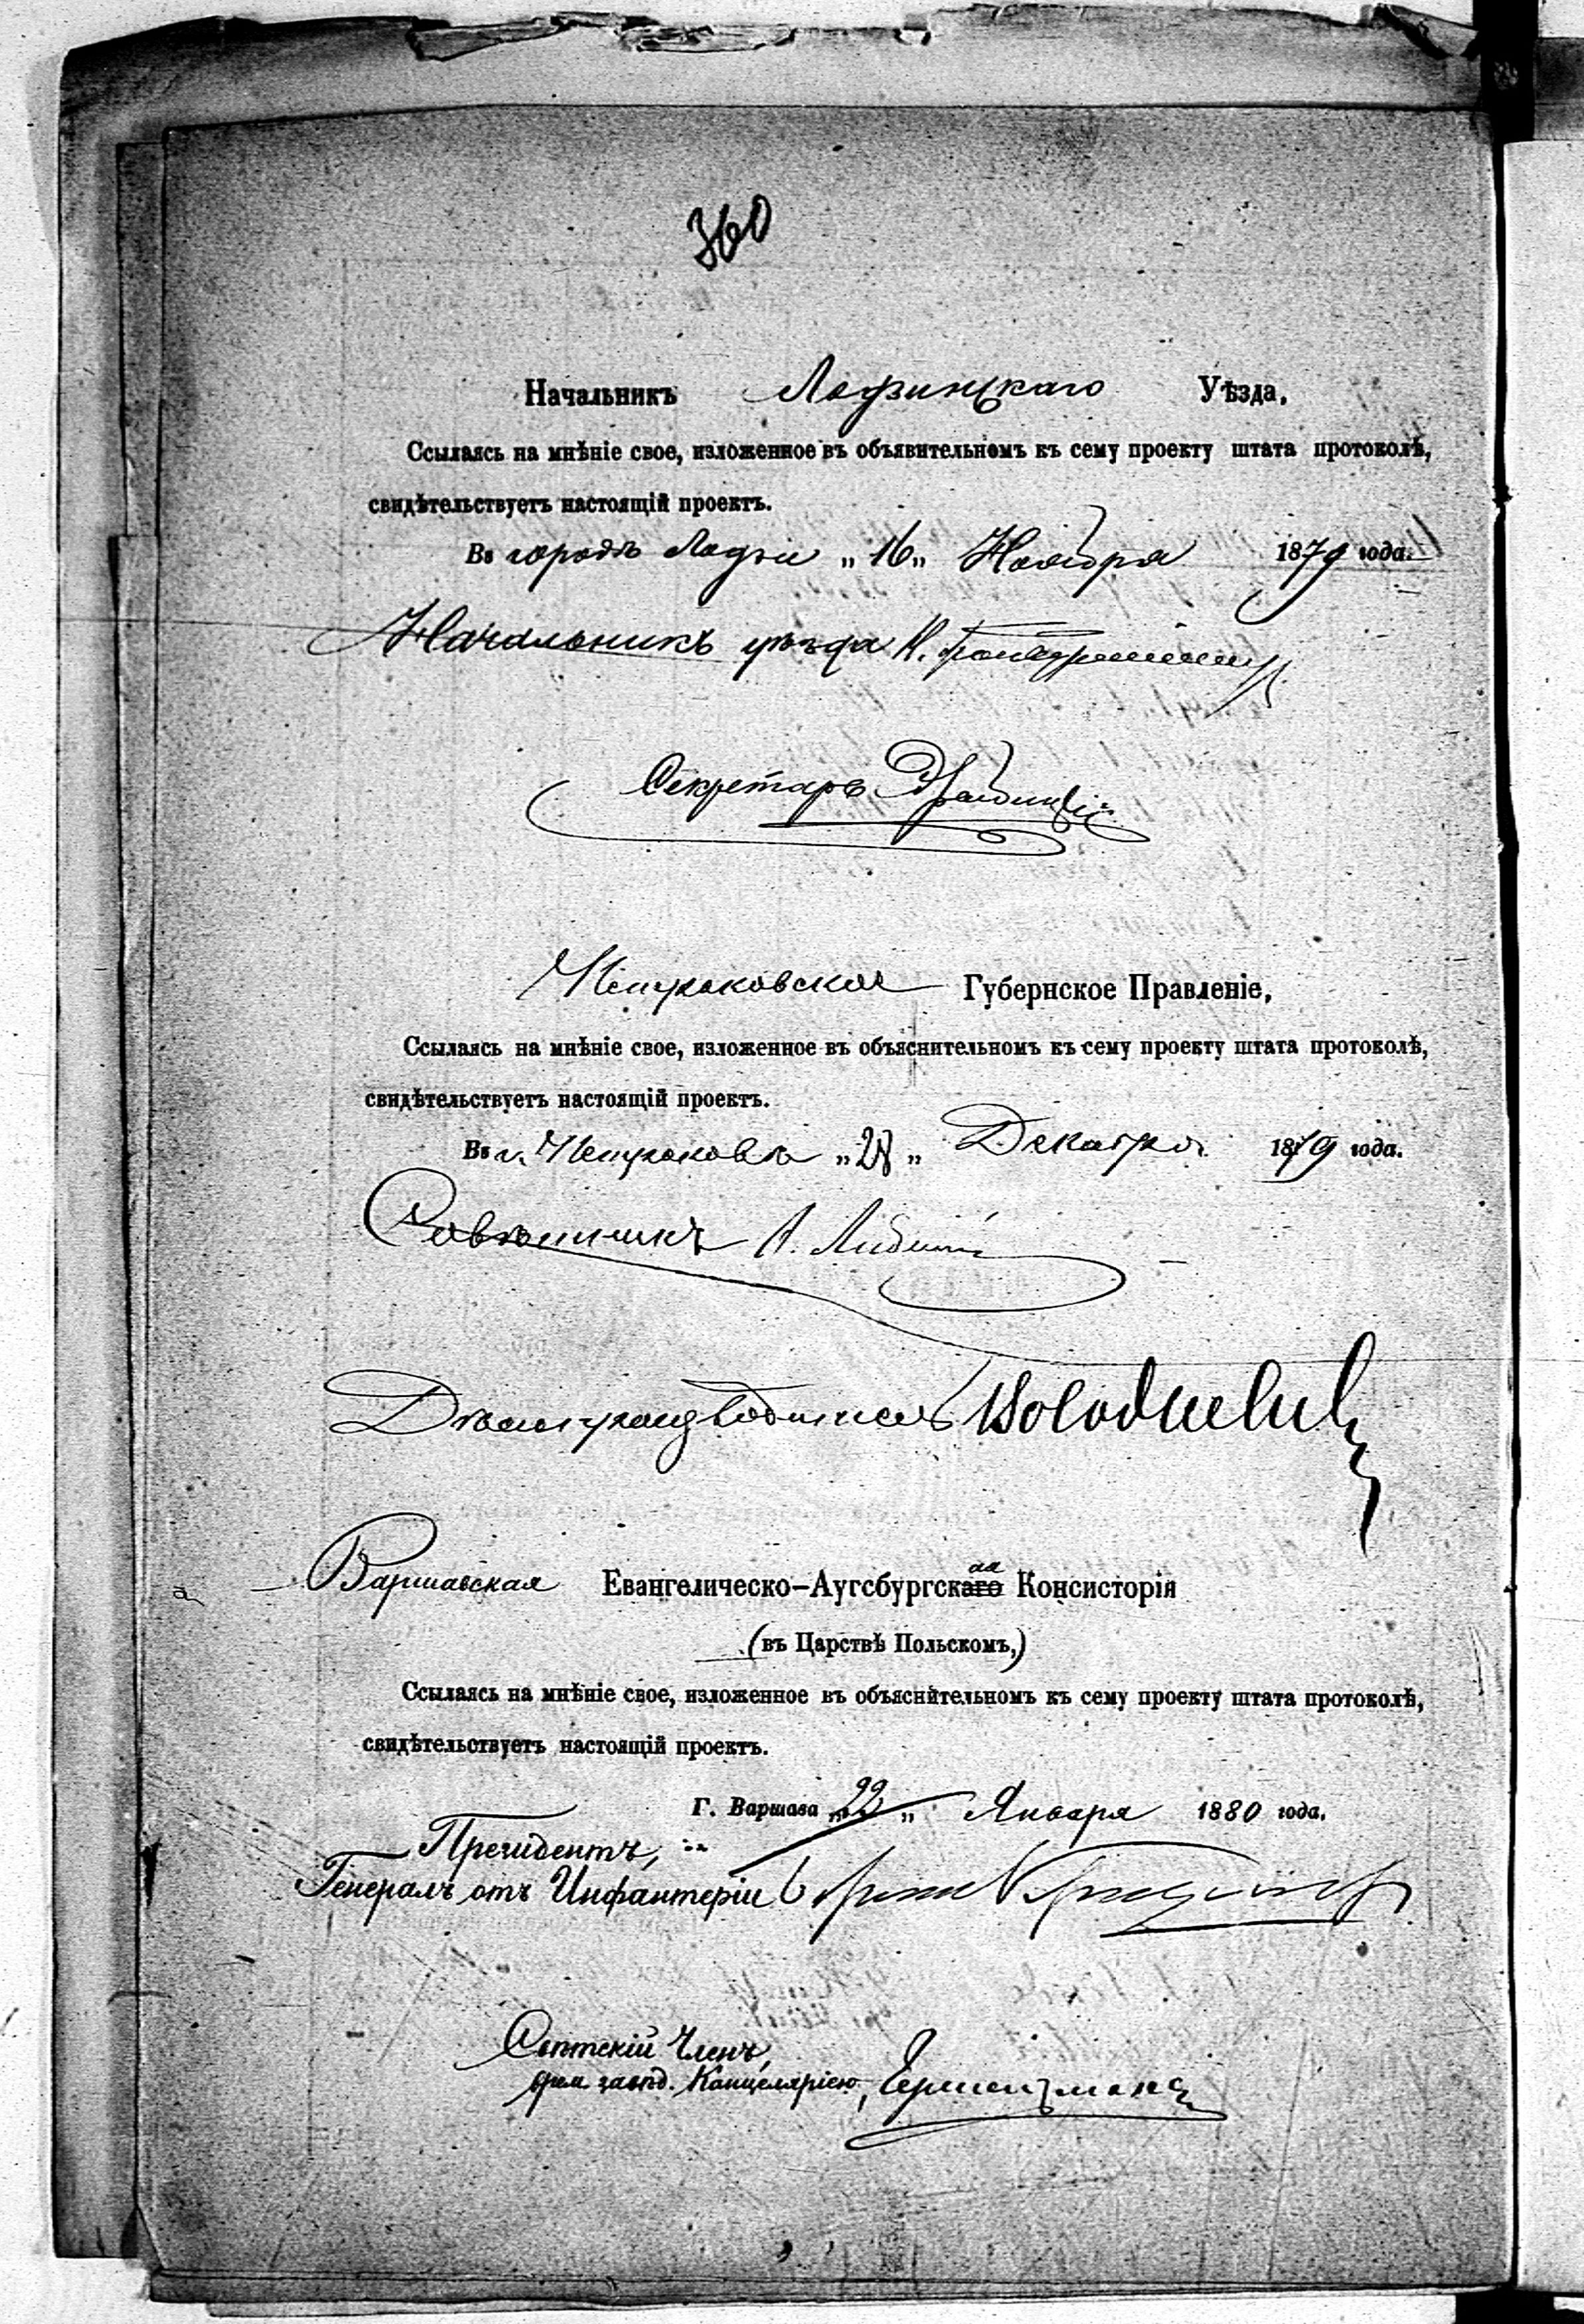 360
Начальникъ Лодзинскаго Уѣзда,
Ссылаясь на мнѣніе свое, изложенное въ объявительномъ къ сему проекту штата протоколѣ,
свидѣтельствуетъ настоящій проектъ.
Въ городѣ Лодзи „16„ Ноября 1879 года.
Начальникъ уѣзда Н.
Секретарь
Петроковское Губернское Правленіе,
Ссылаясь на мнѣніе свое, изложенное въ объяснительномъ къ сему проекту штата протоколѣ,
свидѣтельствуетъ настоящій проектъ.
Въ г. Петроковѣ „28„ Декабря 1879 года.
Совѣтникъ А.
Дѣлопроизводитель
Варшавская Евангелическо-Аугсбургская Консисторія
(въ Царствѣ Польскомъ,)
Ссылаясь на мнѣніе свое, изложенное въ объяснительномъ къ сему проекту штата протоколѣ,
свидѣтельствуетъ настоящій проектъ.
Г. Варшава „22„ Января 1880 года.
Президентъ,
Генералъ отъ Инфантеріи
Свѣтскій Членъ,
врем. завѣд. Канцеляріею,